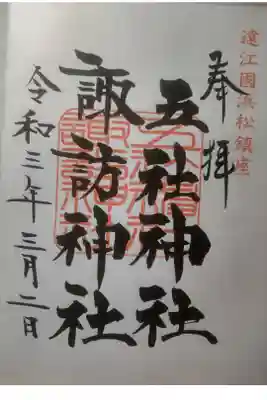 遠江國浜松鎮座
奉拝
五社神社
諏訪神社
令和三年三月二日